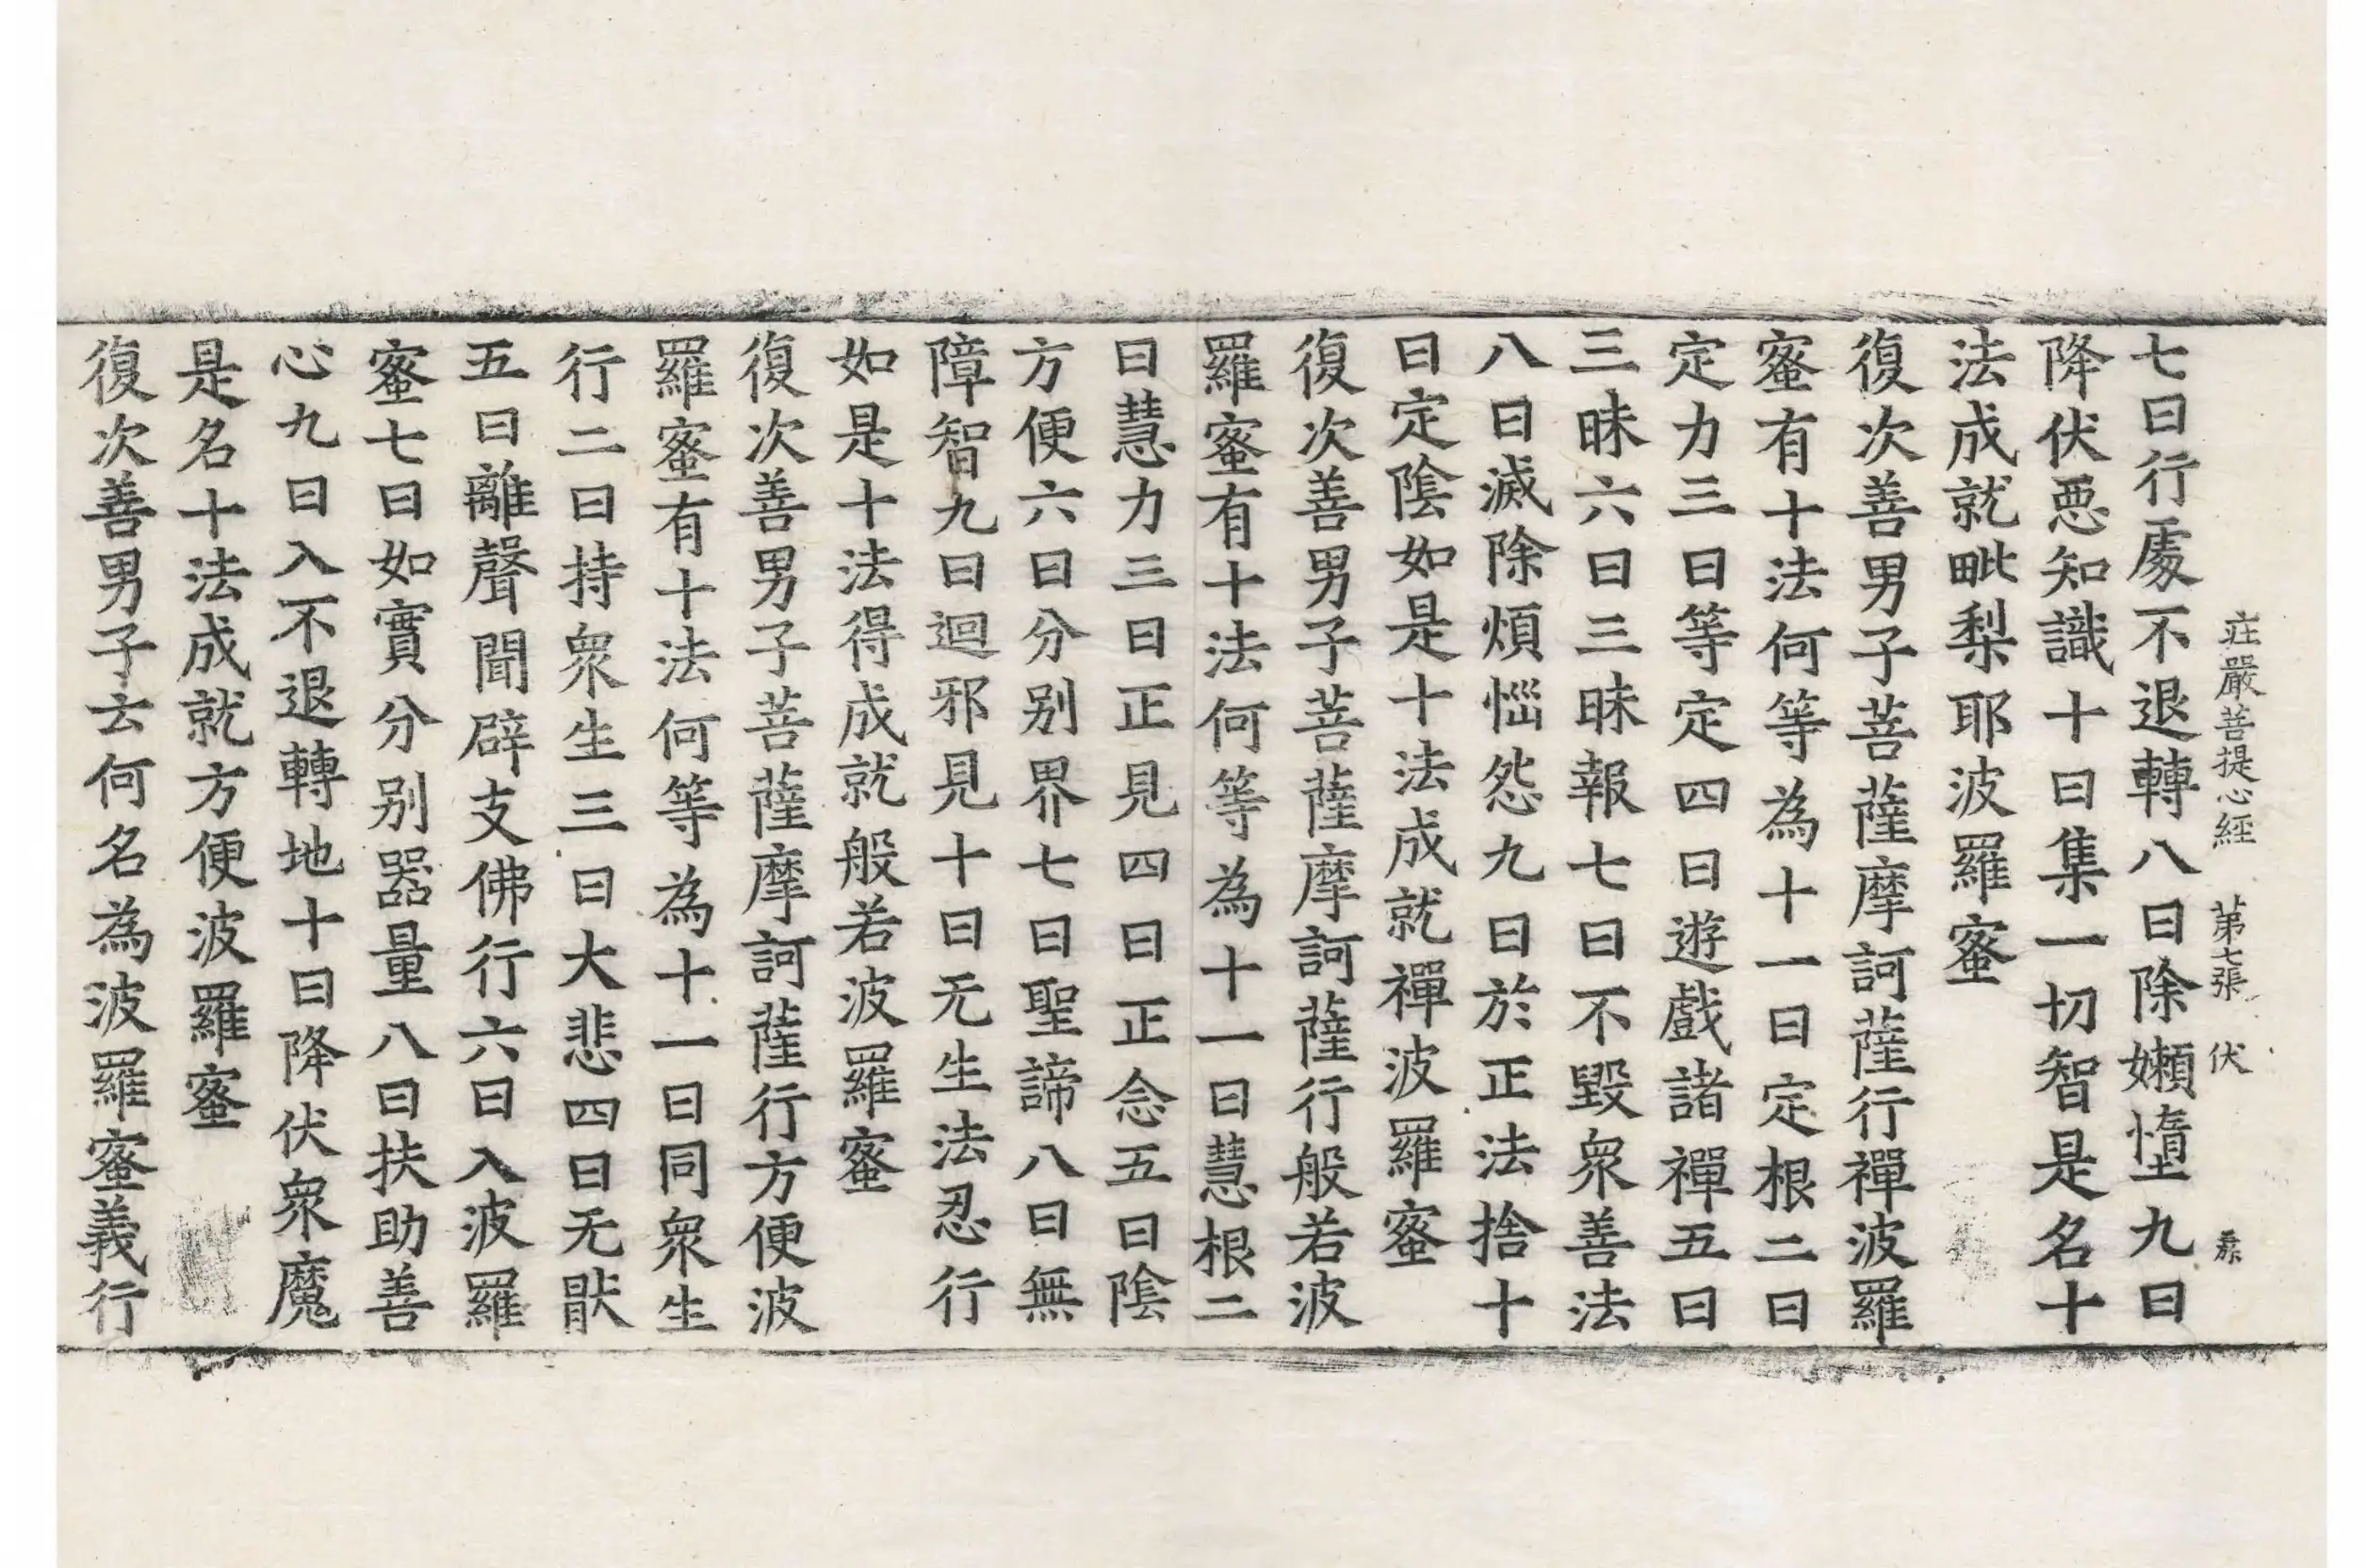 莊嚴菩提心經 第七張 伏
七曰行處不退轉八曰除嬾惰九曰
降伏惡知識十曰集一切智是名十
法成就毗梨耶波羅蜜
復次善男子菩薩摩訶薩行禪波羅
蜜有十法何等為十一曰定根二曰
定力三曰等定四曰遊戲諸禪五曰
三昧六曰三昧報七曰不毀衆善法
八曰滅除煩惱怨九曰於正法捨十
曰定陰如是十法成就禪波羅蜜
復次善男子菩薩摩訶薩行般若波
羅蜜有十法何等為十一曰慧根二
曰慧力三曰正見四曰正念五曰陰
方便六曰分別界七曰聖諦八曰無
障智九曰迴邪見十曰无生法忍行
如是十法得成就般若波羅蜜
復次善男子菩薩摩訶薩行方便波
羅蜜有十法何等為十一曰同衆生
行二曰持衆生三曰大悲四曰无猒
五曰離聲聞辟支佛行六曰入波羅
蜜七曰如實分別器量八曰扶助善
心九曰入不退轉地十曰降伏衆魔
是名十法成就方便波羅蜜
復次善男子云何名為波羅蜜義行